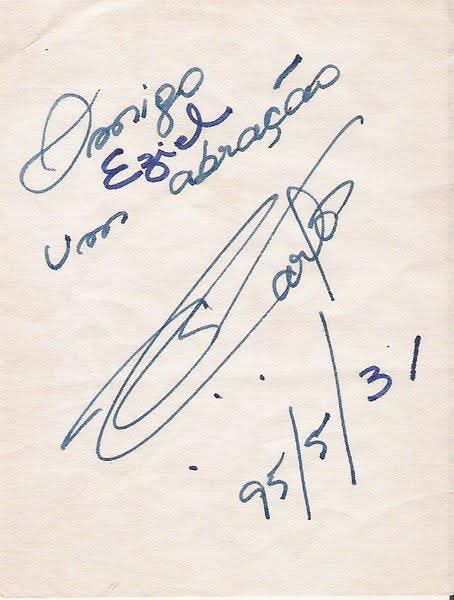 Amigo
Eziel
um abração
95/5/31